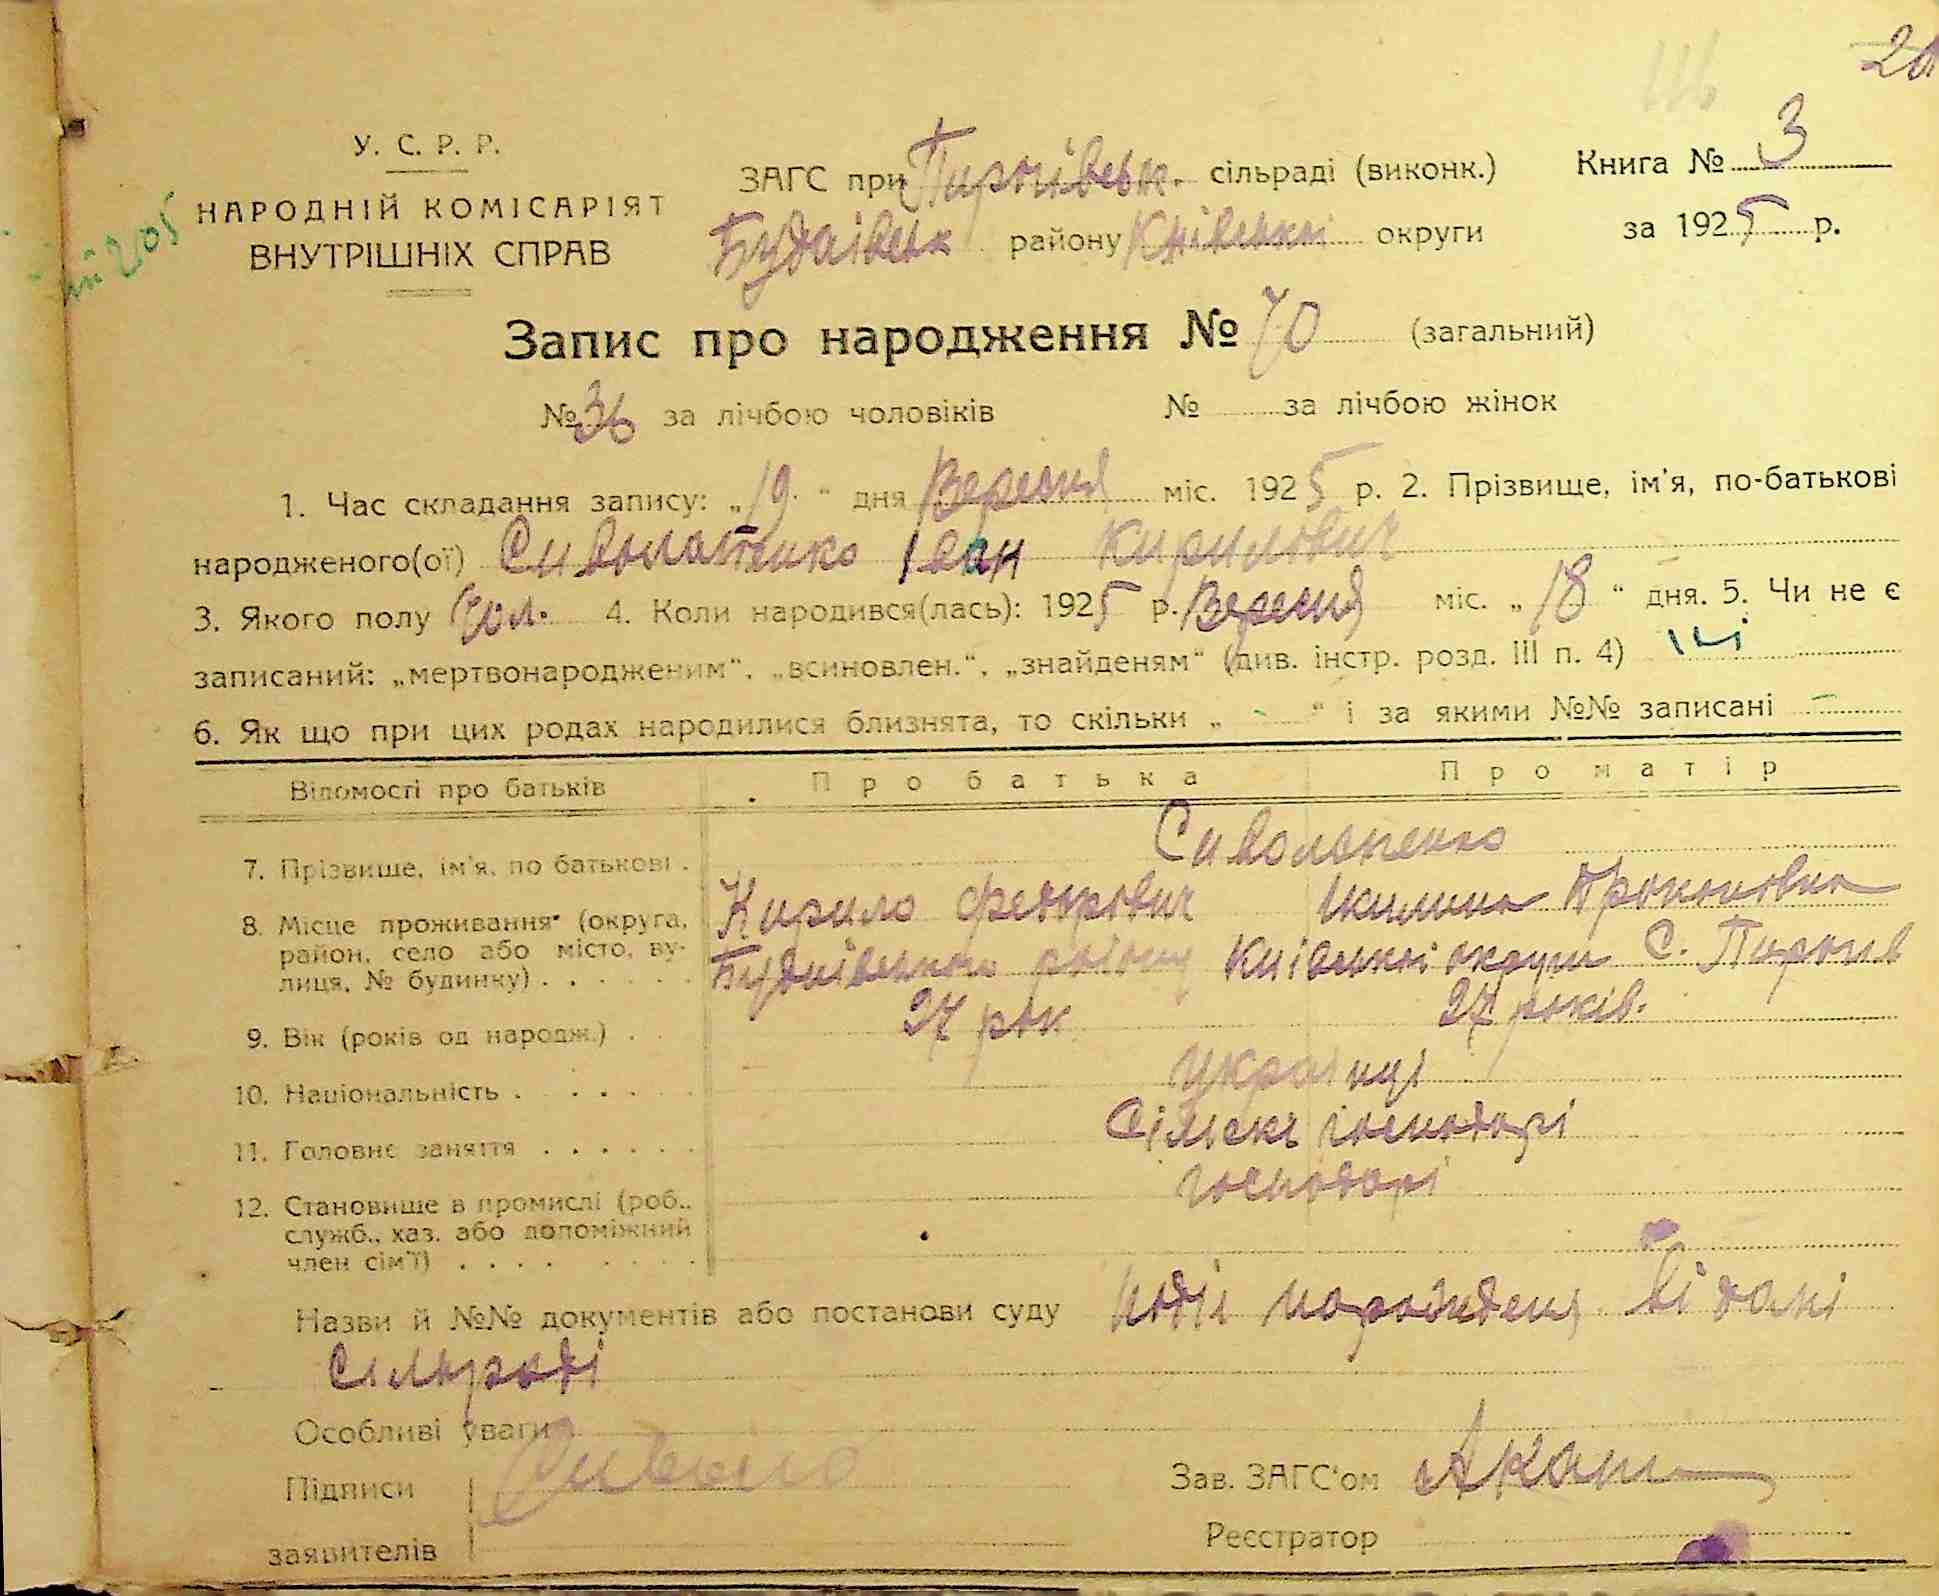 У. С. Р. Р.
НАРОДНІЙ КОМІСАРІЯТ
ВНУТРІШНІХ СПРАВ
ЗАГС при Пирогівськ. сільраді (виконк.)
Будаівськ району Київської округи
Книга № 3
за 1925 р.
Запис про народження № 70 (загальний)
№ 36 за лічбою чоловіків № за лічбою жінок
1. Час складання запису: „19" дня Вересня міс. 1925 р. 2. Прізвище, ім'я, по-батькові
народженого(ої) Сиволапенко Іван Кирилович
3. Якого полу Чол. 4. Коли народився(лась): 1925 р. Вересня міс. „18" дня. 5. Чи не є
записаний: „мертвонародженим", „всиновлен.", „знайденям" (див. інстр. розд. III п. 4) ні
6. Як що при цих родах народилися близнята, то скільки „ - " і за якими №№ записані -
Відомості про батьків Про батька Про матір
Сиволапенко
7. Прізвище, ім'я, по батькові .
Кирило Федорович Килина Прокоповна
8. Місце проживання (округа,
район, село або місто, ву-
лиця, № будинку) . . . . . .
Будаівського району Київської округи С. Пирогів
9. Вік (років од народж.) . . 27 рок 27 років.
10. Національність . . . . . Українці
11. Головне заняття . . . . . . Сільськ господарі
12. Становище в промислі (роб.,
служб., хаз. або допоміжний
член сім'ї) . . . . . . . .
господарі
Назви й №№ документів або постанови суду народження
Сільраді
Особливі уваги
Підписи
заявителів
Зав. ЗАГС'ом
Реєстратор